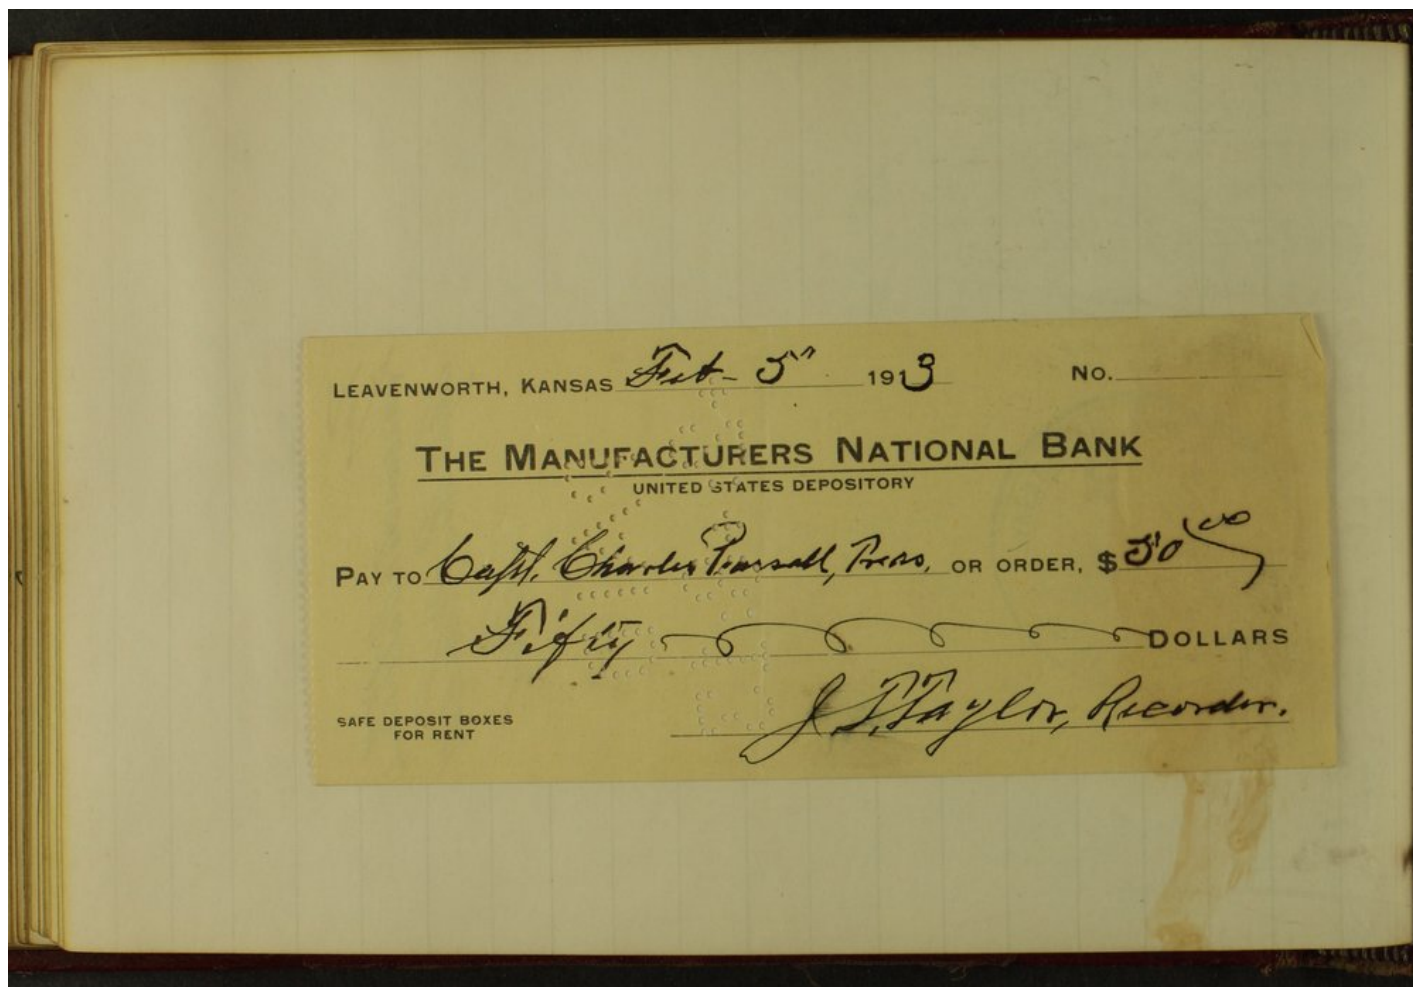 LEAVENWORTH, KANSAS Feb - 5" 1913 No.
THE MANUFACTURERS NATIONAL BANK
UNITED STATES DEPOSITORY
PAY TO Capt. Charles Pursall, Treas, OR ORDER, $ 50 00
Fifty DOLLARS
SAFE DEPOSIT BOXES
FOR RENT
J. T. Taylor, Recorder.